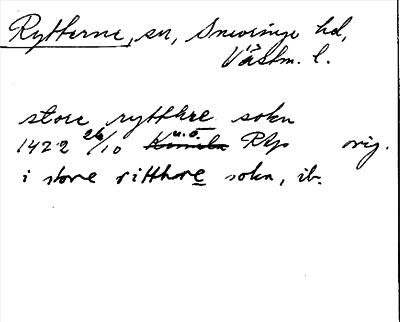 Rytterne, sn, Snevringe hd,
Västm. l.
store rytthre sokn
1422 26/10 u.ö. Rlp orig.
i store ritthre sokn, ib.